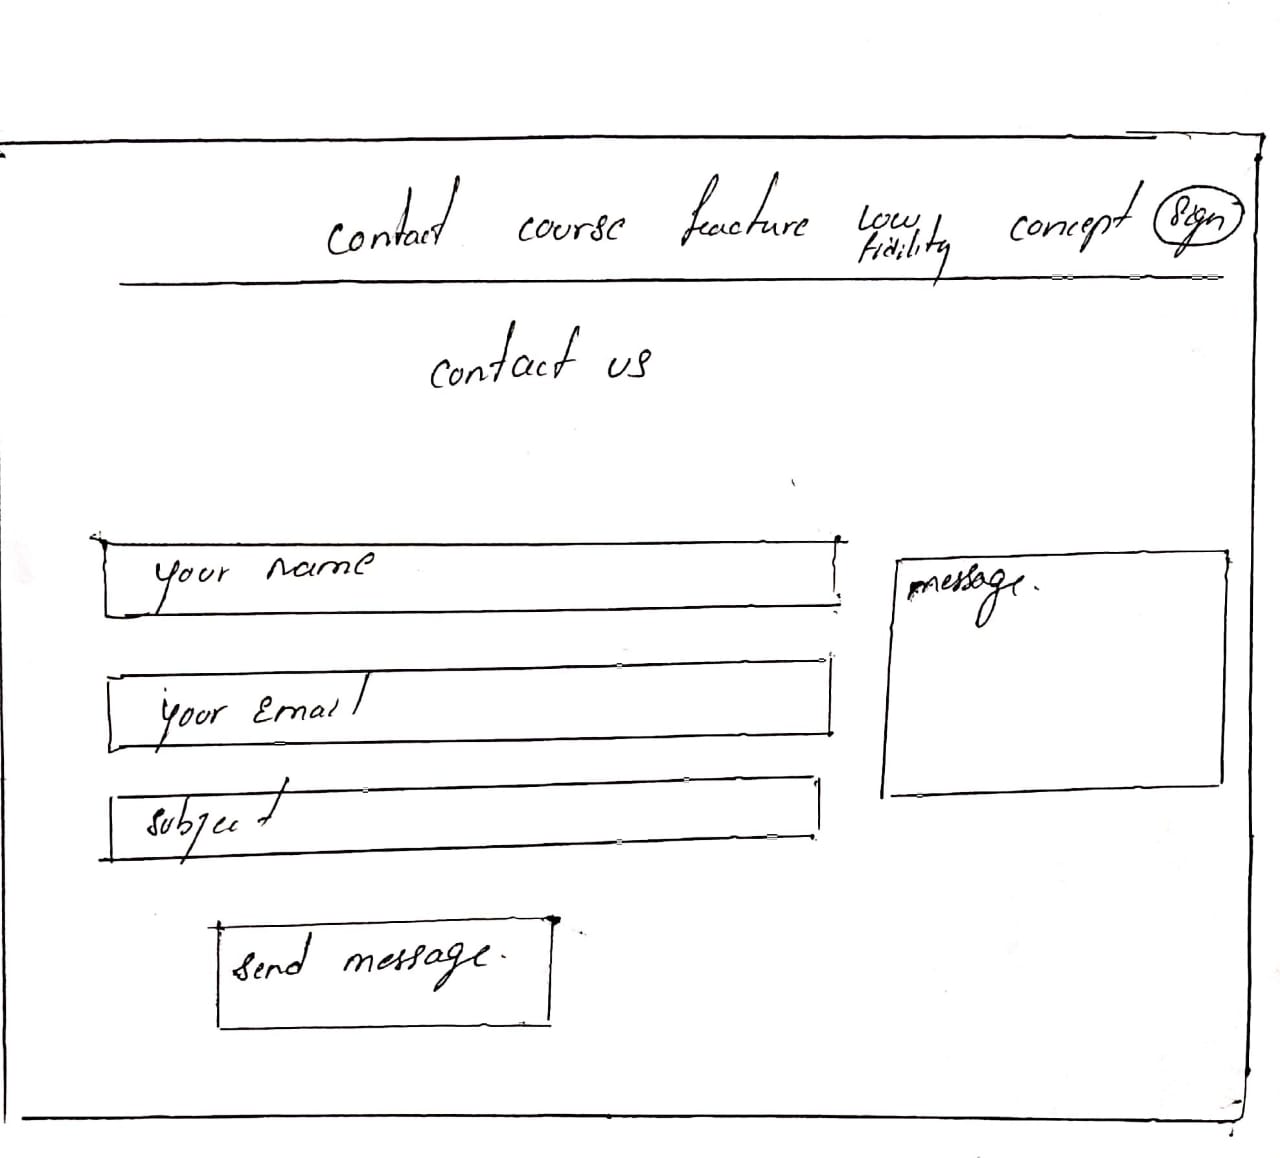 contact course feacture low fidility concept sign
contact us
your name
message.
your Email
subject
send message.